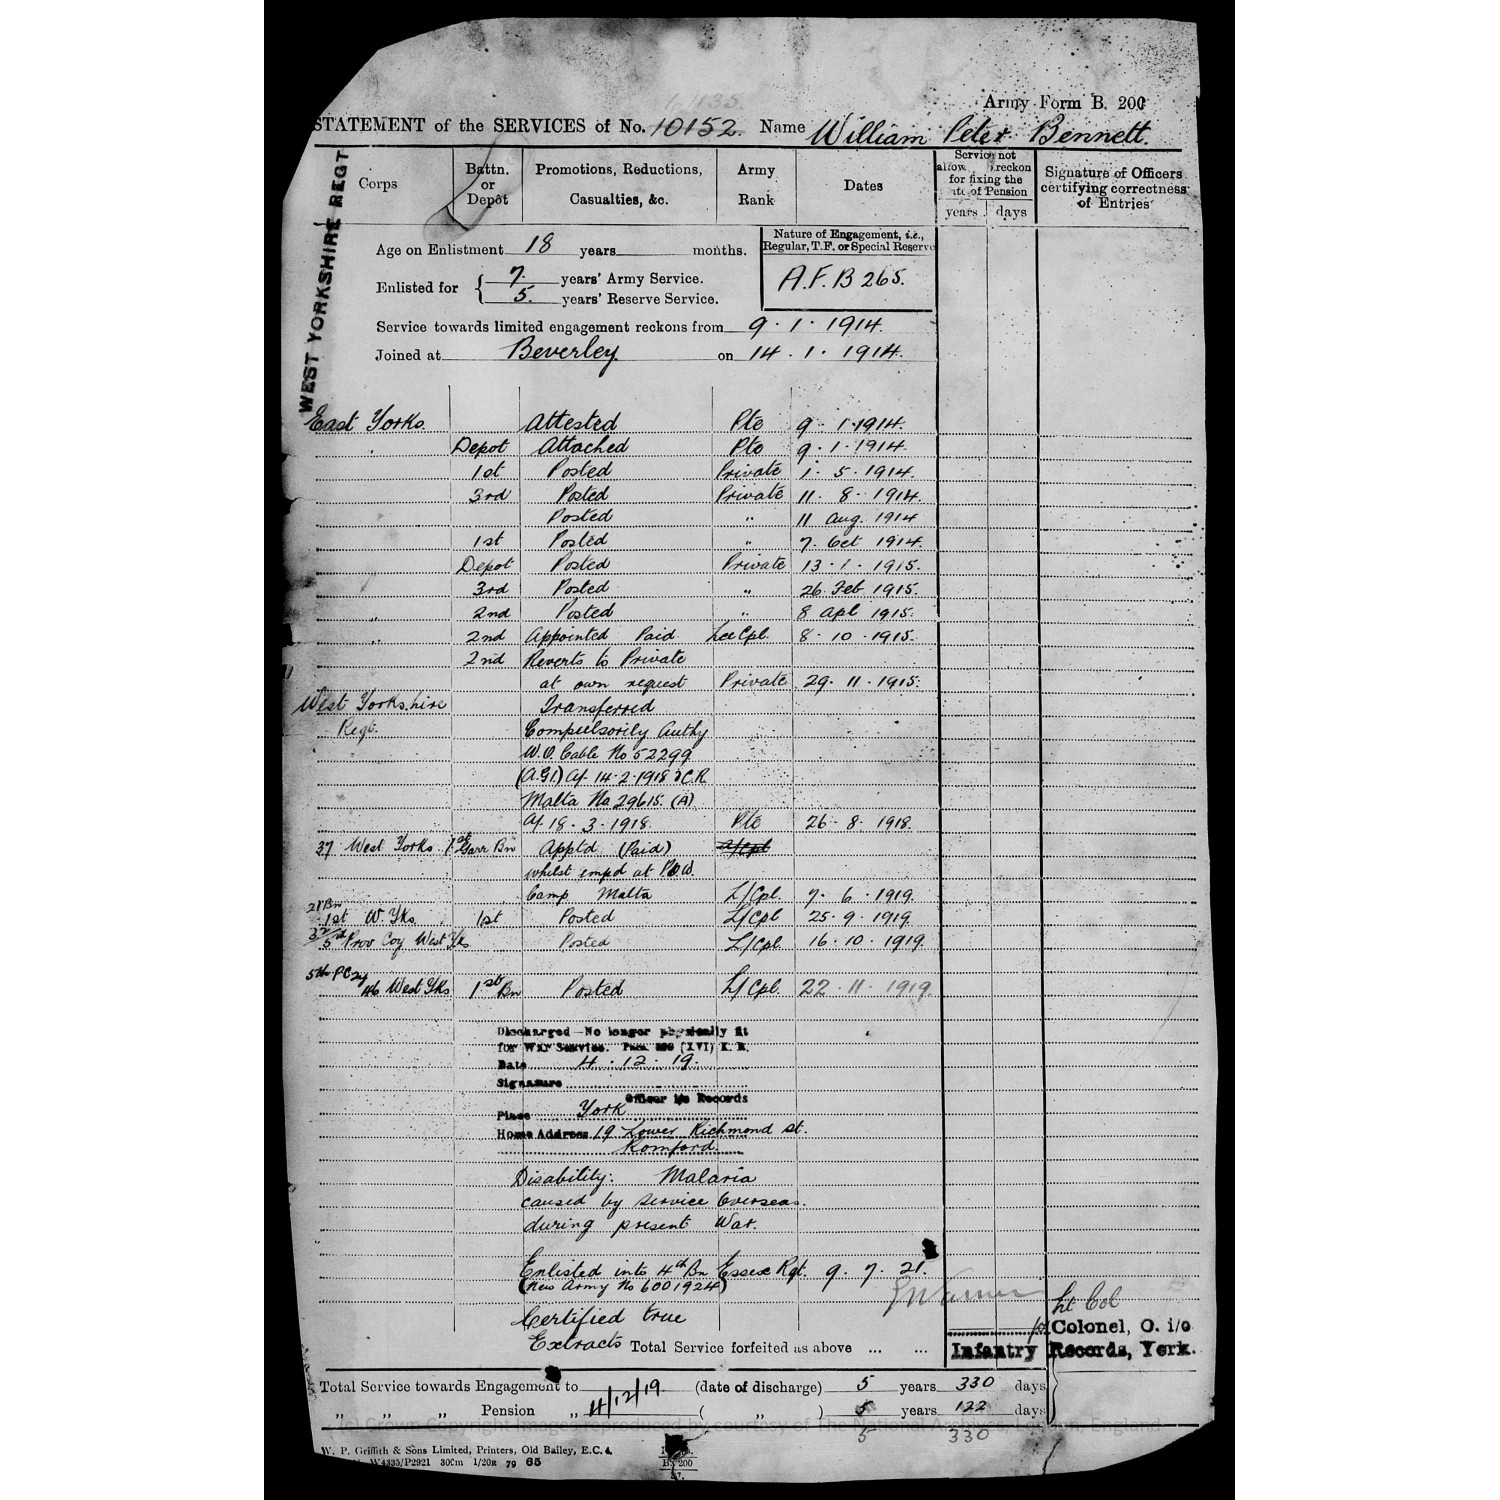 Army Form B. 200
STATEMENT of the SERVICES of No. 10152. Name William Peter Bennett.
WEST YORKSHIRE REGT
Corps
Battn. or Depôt
Promotions, Reductions, Casualties, &c.
Army Rank
Dates
Service not allow reckon for fixing the of Pension
years days
Signature of Officers certifying correctness of Entries
Age on Enlistment 18 years months.
Nature of Engagement, i.e., Regular, T.F. or Special Reserve
A.F.B 265.
Enlisted for { 7. years' Army Service.
5. years' Reserve Service.
Service towards limited engagement reckons from 9.1.1914.
Joined at Beverley on 14.1.1914.
East Yorks. Attested Pte 9.1.1914.
Depot Attached Pte 9.1.1914.
1st Posted Private 1.5.1914.
3rd Posted Private 11.8.1914.
Posted " 11 Aug. 1914
1st Posted " 7. Oct 1914.
Depot Posted Private 13.1.1915.
3rd Posted " 26 Feb 1915.
" 2nd Posted " 8 Apl 1915.
" 2nd Appointed Paid Lce Cpl. 8.10.1915.
2nd Reverts to Private
at own request Private 29.11.1915.
West Yorkshire Transferred
Regt. Compulsorily Authy
W.O. Cable No 52299
(A.G1.) of 14-2-1918 & C.R
Malta No 29615. (A)
of 18.3.1918. Pte 26.8.1918.
37 West Yorks 1st Garr Bn Apptd (Paid) A/Cpl
whilst empd at P.O.W.
Camp Malta L/Cpl. 7.6.1919.
1st W. Yks. 1st Posted L/Cpl 25.9.1919.
5th Prov Coy West Yks Posted L/Cpl 16.10.1919.
5th P C
46 West Yks 1st Bn Posted L/Cpl. 22.11.1919.
Discharged—No longer physically fit
for War Service. Para. (XVI) K. R.
Date 4.12.19.
Signature
Officer i/c Records
Place York
Home Address 19 Lower Richmond St.
Romford.
Disability: Malaria
caused by service Overseas.
during present War.
Enlisted into 4th Bn Essex Rgt. 9.7.21.
(New Army No 6001924)
Certified true
Extracts
Lt Col
Colonel, O. i/o
Infantry Records, York.
Total Service forfeited as above ... ...
Total Service towards Engagement to 4/12/19 (date of discharge) 5 years 330 days
" " " Pension " ( " ) 5 years 122 days
5 330
(c) Crown Copyright Images reproduced by courtesy of The National Archives, London, England
W. P. Griffith & Sons Limited, Printers, Old Bailey, E.C.4.
W4335/P2921 300m 1/20R 79 65